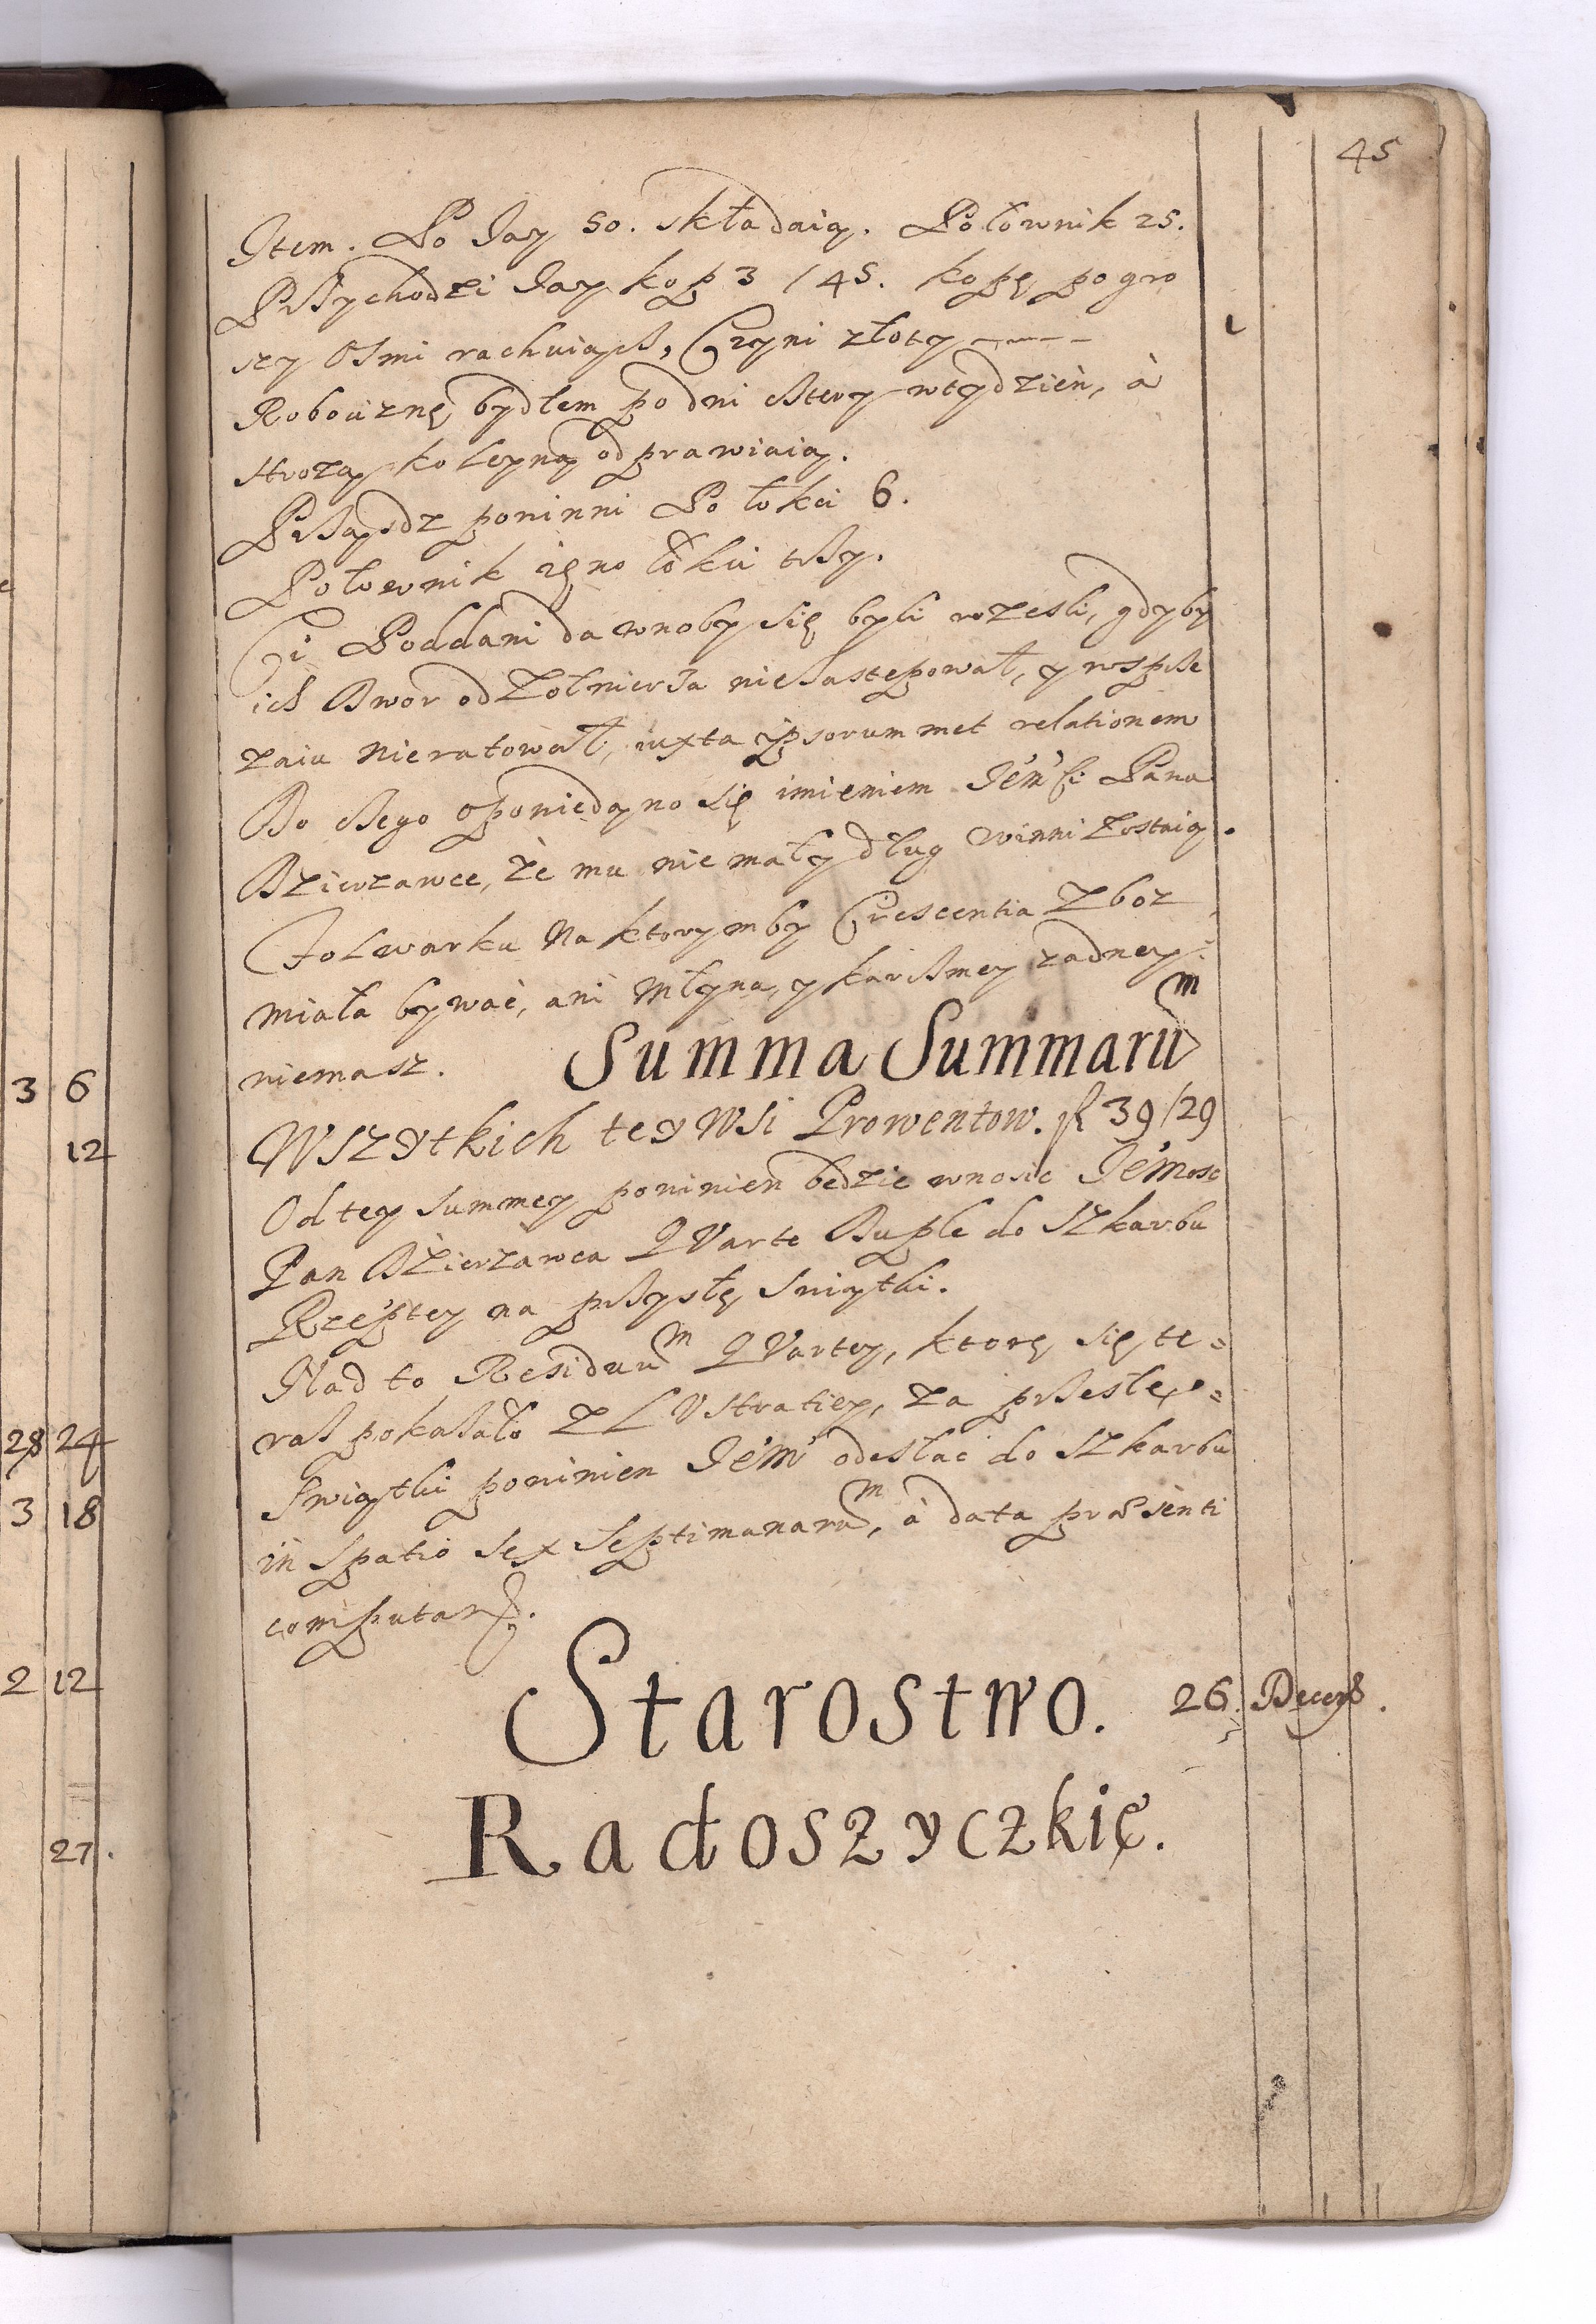 45
Item. Po Jay 50. składaią. Połownik 25.
Przychodzi Jay kop 3 / 45. kopę po gro
szy Osmi rachuiącz, Czyni złoty 1
Roboćiznę bydłem po dni cztery w tydzień, à
strożą koleyną odprawiaią.
Prząsdz powinni Po łokci 6.
Połownik zęno łokci trzy.
Ci Poddani dawnoby się byli rozesli, gdyby
ich Dwor od Zołnierza nie zastępował, y wsprze
zaiu nie ratował, iuxta ipsorummet relationem
Do czego opowiedayno się imieniem Jem̃ści Pana
Dzierzawce, że mu nie mały dług winni zostaią.
Folwarku Na ktorymby Crescentia Zboz
miała bywać, ani Młyna, y karczmey zadney
niemasz. Summa Summarũm
Wszytkich tey Wsi Prowentow. fl 39/29
Od tey summey powinien będzie wnosic Jemosc
Pan Dzierzawca QVarte Duple do Szkarbu
Rzeptey na przysłę Swiątki.
Nad to Residuũm QVartey, ktorę się te=
raz pokazało z LVstratiey, za przesłę=
Swiątki powinien Jem̃ odesłac do Szkarbu
in Spatio sex Septimanarũm, à data præsenti
computan.
Starostwo. 26. Decemb.
Radoszyczkię.
3 6
12
28 24
3 18
2 12
27.